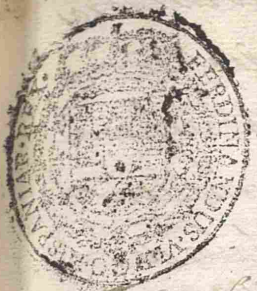 FERDINANDUS HISPANIAR. REX.